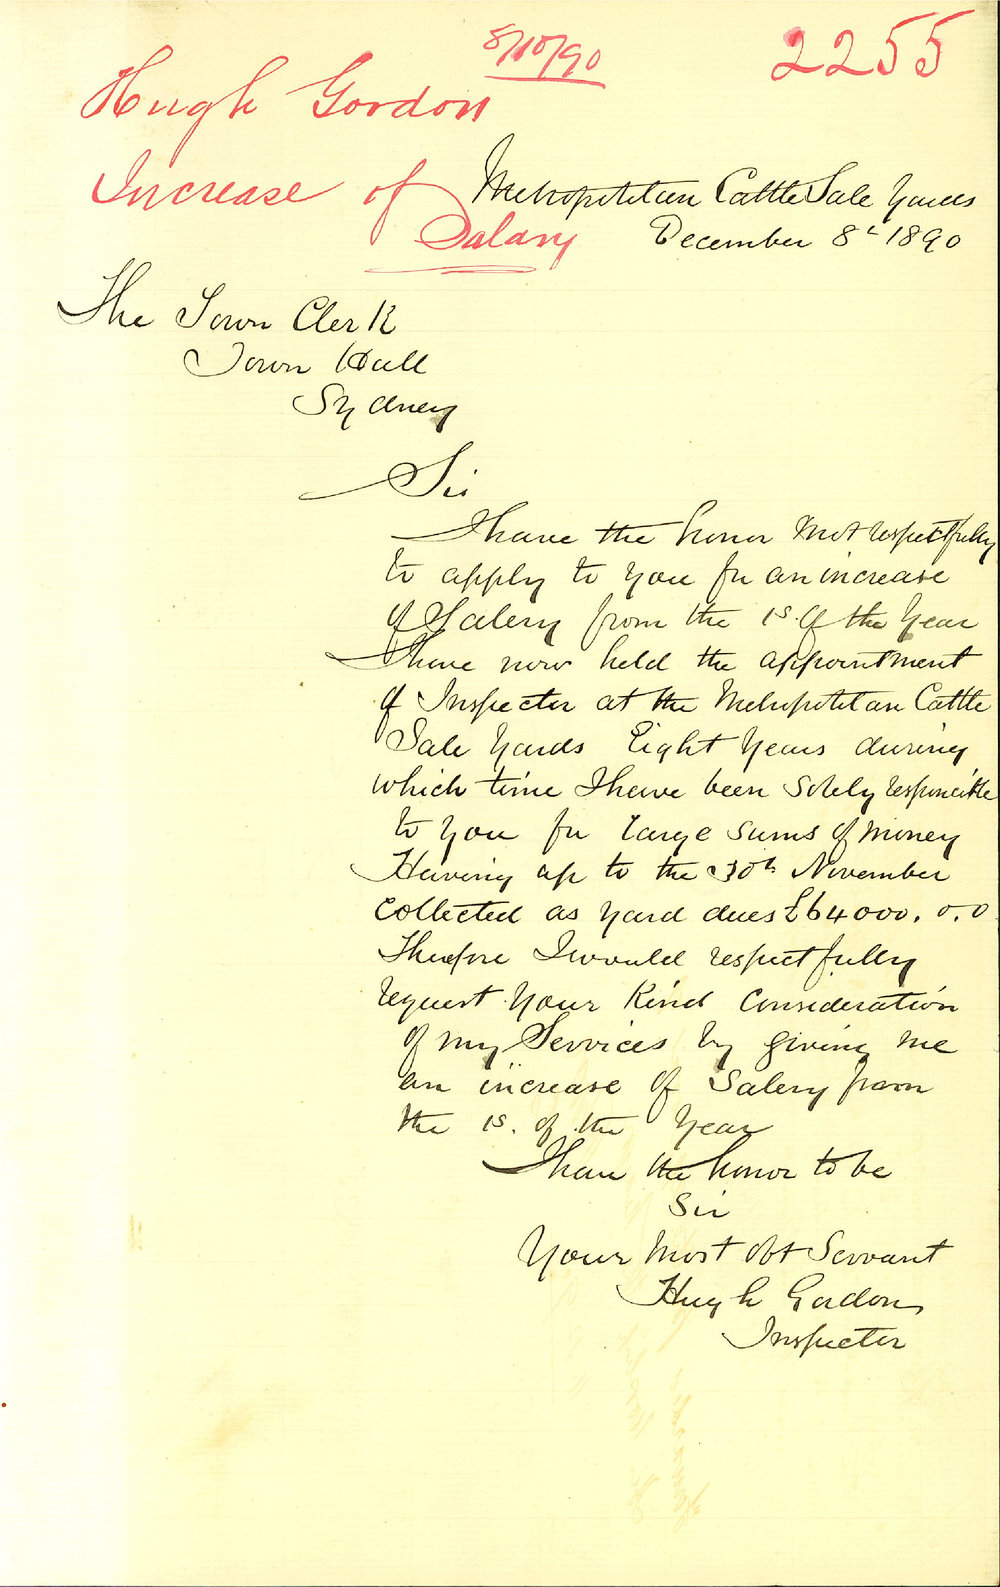 8/10/90
2255
Hugh Gordon
Increase of
Salary
Metropolitan Cattle Sale Yards
December 8th 1890
The Town Clerk
Town Hall
Sydney
Sir
I have the honor most respectfully
to apply to you for an increase
of Salery from the 1s. of the Year
I have now held the appointment
of Inspecter at the Metropolitan Cattle
Sale Yards Eight Years during
which time I have been Solely responcible
to you for large sums of money
Having up to the 30th November
collected as yard dues £64000.0.0
Therefore I would respectfully
request your Kind Consideration
of my Services by giving me
an increase of Salery from
the 1s. of the Year
I have the honor to be
Sir
Your most obt Servant
Hugh Gordon
Inspecter